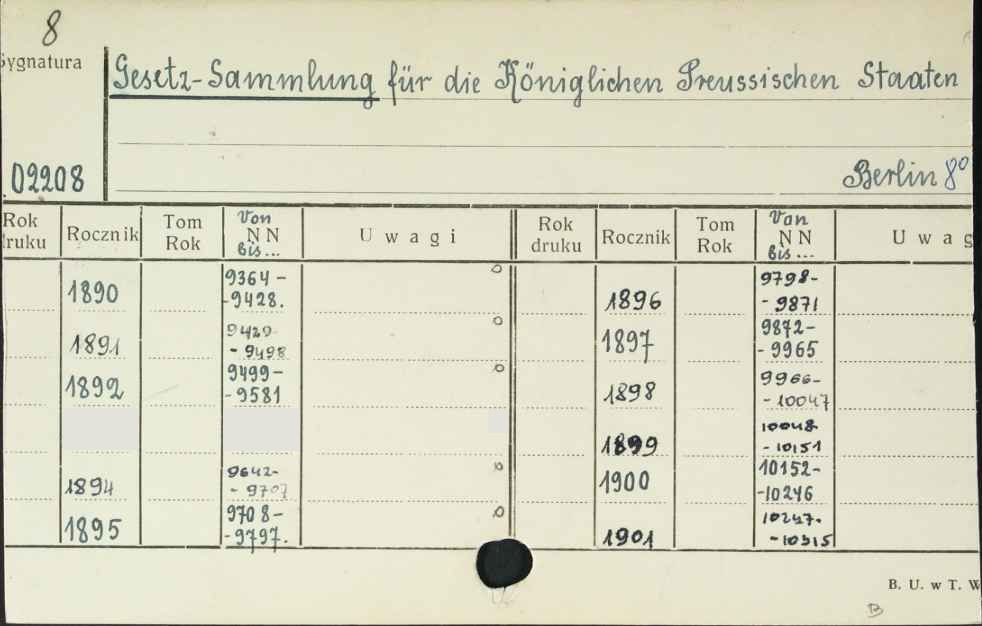 8
Sygnatura
Gesetz-Sammlung für die Königlichen Preussischen Staaten
02208
Berlin 8°
Rok druku Rocznik Tom Rok Von NN bis... Uwagi Rok druku Rocznik Tom Rok Von NN bis... Uwag
1890 9364-
-9428.
1891 9429-
-9498
1892 9499-
-9581
1894 9642-
-9707
1895 9708-
-9797.
1896 9798-
-9871
1897 9872-
-9965
1898 9966-
-10047
1899 10048-
-10151
1900 10152-
-10246
1901 10247-
-10315
B. U. w T. W
B